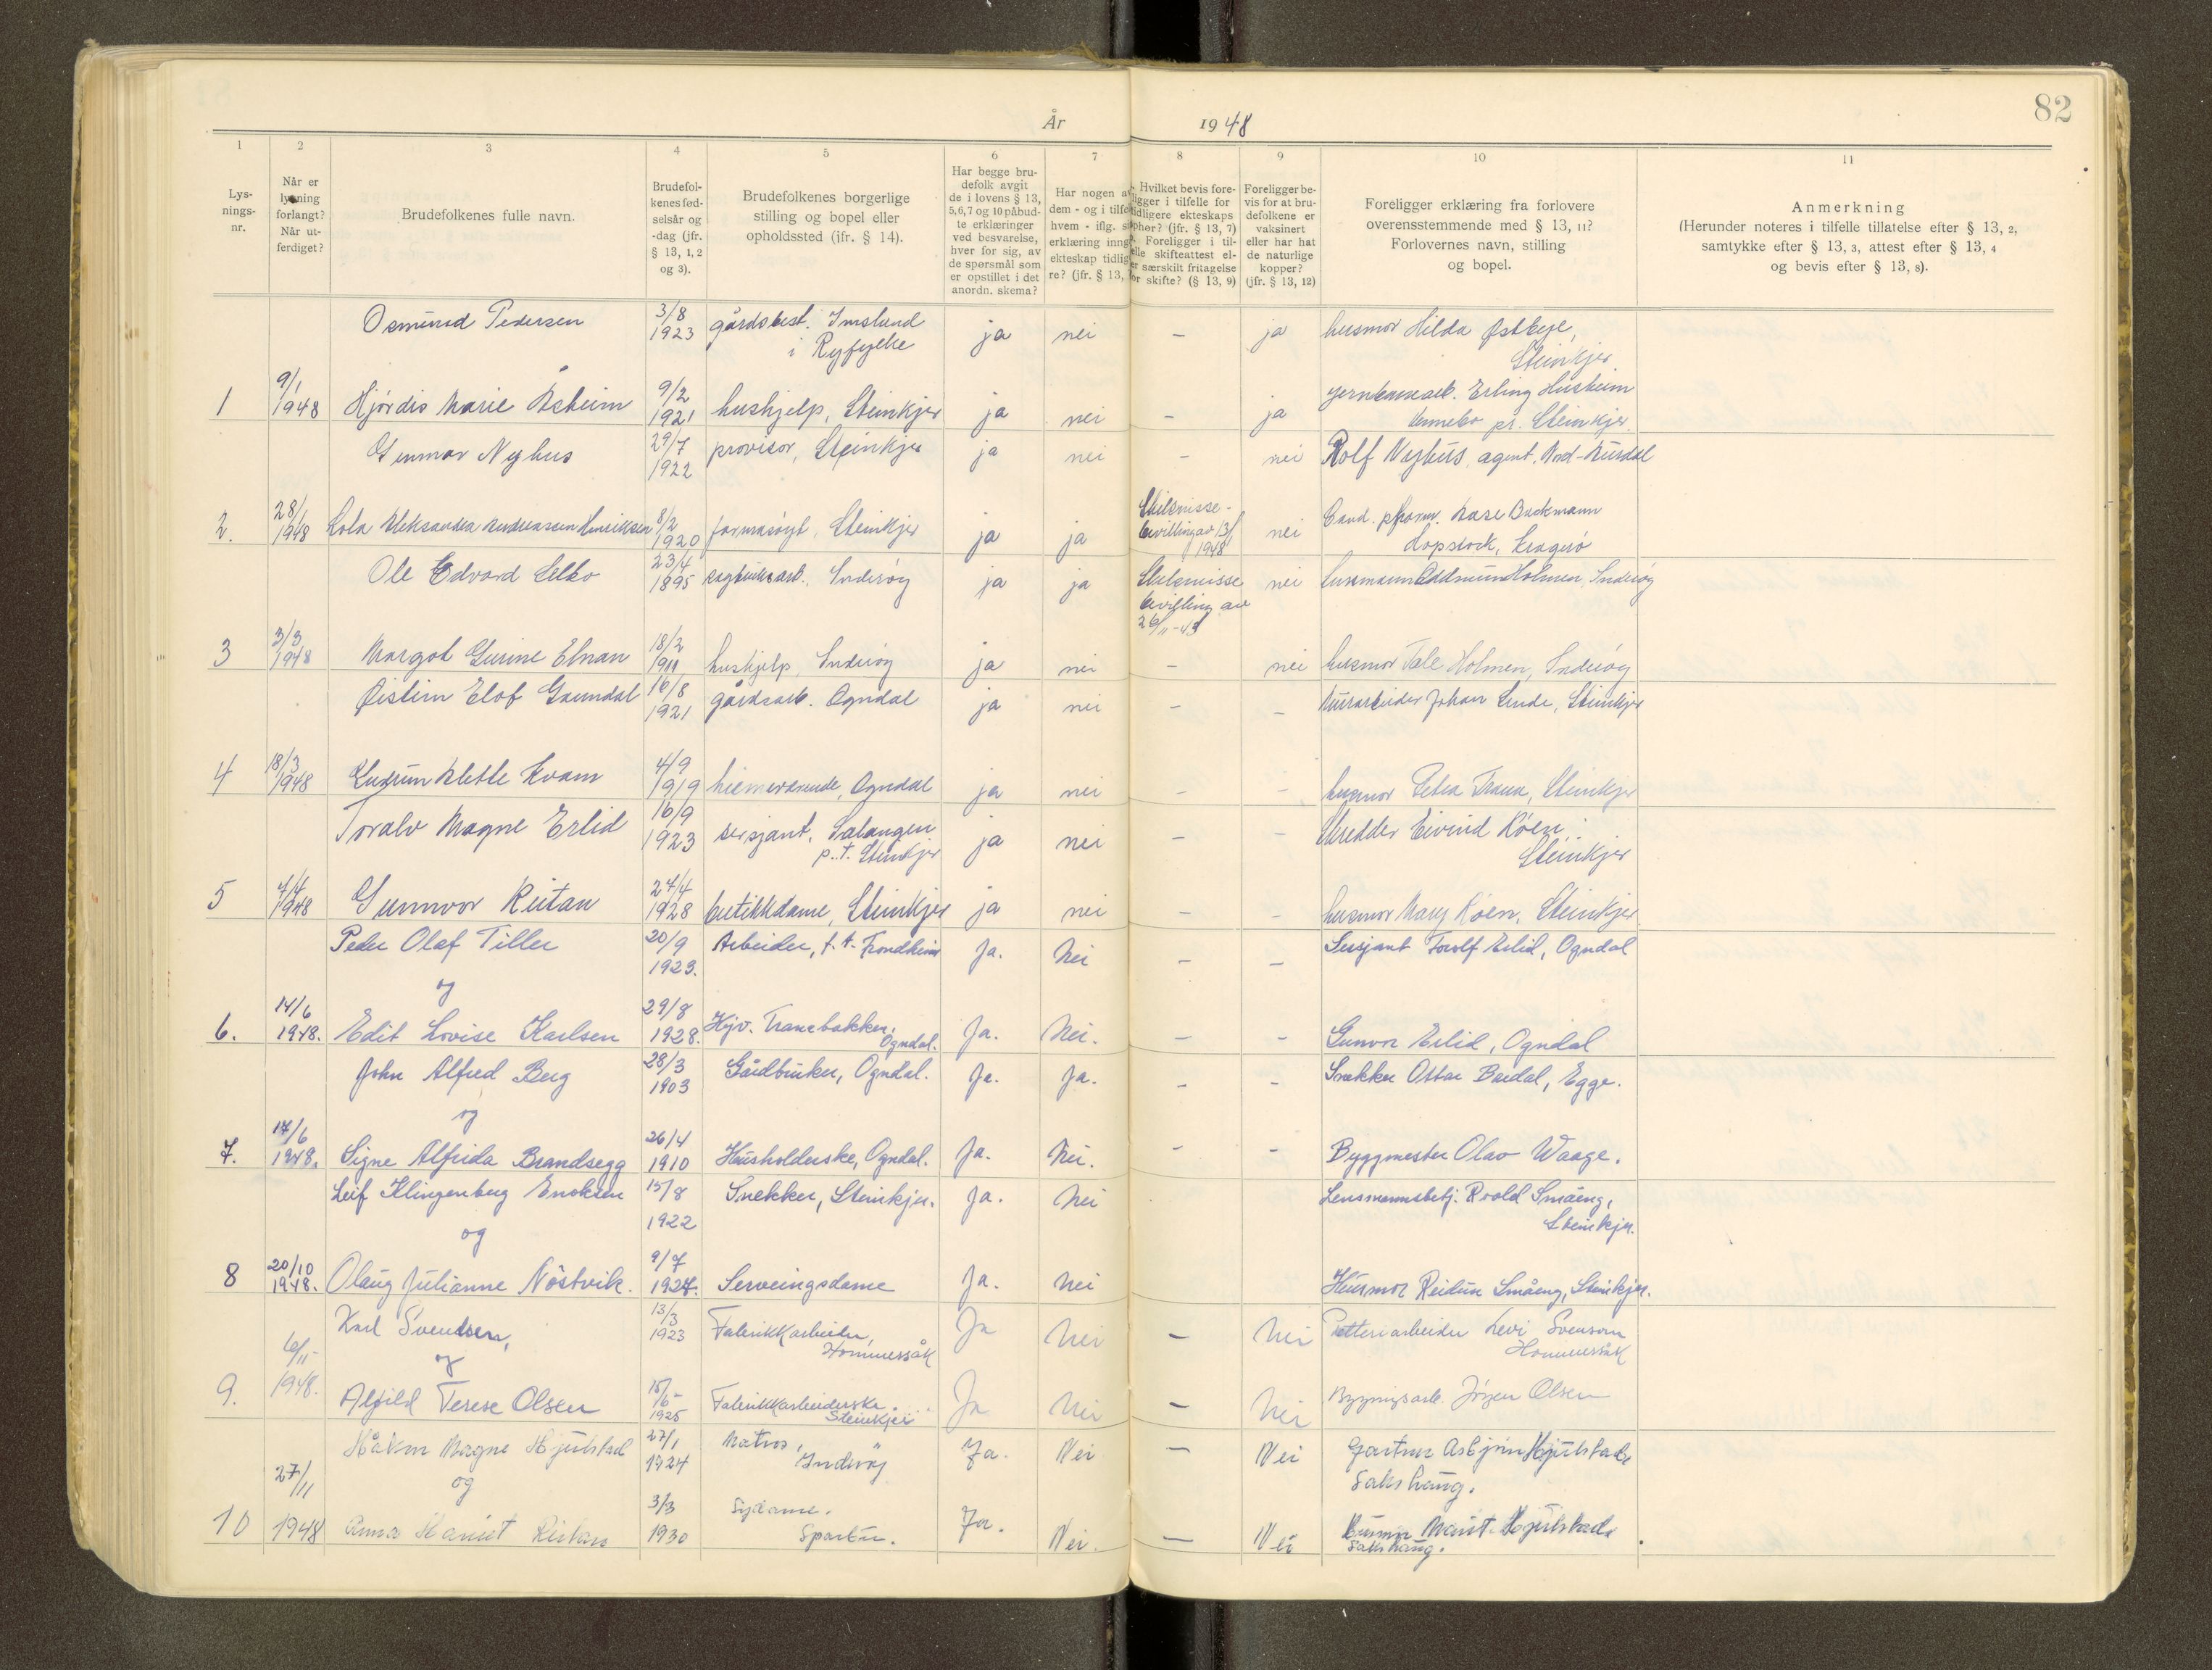 82
År 1948
1
2
3
4
5
6
7
8
9
10
11
Lys-
nings-
nr.
Når er
lysning
forlangt?
Når ut-
ferdiget?
Brudefolkenes fulle navn.
Brudefol-
kenes fød-
selsår og
-dag (jfr.
§ 13, 1, 2
og 3).
Brudefolkenes borgerlige
stilling og bopel eller
opholdssted (ifr. § 14).
Har begge bru-
defolk avgit
de i lovens § 13,
5,6,7 og 10 påbud-
te erklæringer
ved besvarelse,
hver for sig, av
de spørsmål som
er opstillet i det
anordn. skema?
Har nogen av
dem - og i tilfe
hvem - iflg. s
erklæring inng
ekteskap tidlig
re? (jfr. § 13,
Hvilket bevis fore-
ligger i tilfelle for
tidligere ekteskaps
ophør? (jfr. § 13, 7)
Foreligger i til-
elle skifteattest el-
er særskilt fritagelse
for skifte? (§ 13, 9)
Foreligger be-
vis for at bru-
defolkene er
vaksinert
eller har hat
de naturlige
kopper?
(jfr. § 13, 12)
Foreligger erklæring fra forlovere
overensstemmende med § 13, 11?
Forlovernes navn, stilling
og bopel.
Anmerkning
(Herunder noteres i tilfelle tillatelse efter § 13, 2,
samtykke efter § 13, 3, attest efter § 13, 4
og bevis efter § 13, 8).
Osmund Pedersen 3/8 1923 gårdsbest. Imslund
i Ryfylke ja nei – ja husmor Hilda Østbye,
Steinkjer
1 9/1 1948 Hjördis Marie Åsheim 9/2 1921 hushjelp, Steinkjer ja nei – ja jernbanearb. Erling Husheim
pr. Steinkjer.
Gunnar Nyhus 29/7 1922 provisor, Steinkjer ja nei – nei Rolf Nyhus, agent.
2. 28/1 1948 Lola Aleksandra Andreassen Henriksen 8/2 1920 farmasøyt, Steinkjer ja ja Skilsmisse-
bevilling av 13/1
1948 nei Cand. pharm. Aase Backmann
Kragerö
Ole Edvard Lelbo 23/4 1895 sagbruksarb. Inderöy ja ja Skilsmisse
bevilling av
26/11-43 nei Oddmun Holmen, Inderöy
3 3/3 1948 Margot Gurine Elnan 18/2 1911 hushjelp, Inderöy ja nei – nei husmor Tale Holmen, Inderöy
Øistein Elof Grundal 16/8 1921 gårdsarb. Ogndal ja nei – – Murarbeider Johan Linde, Steinkjer
4 18/3 1948 Gudrun Alette Kvam 4/9 1919 hjemmeværende, Ogndal ja nei – – husmor Petra Trana, Steinkjer
Toralv Magne Erlid 16/9 1923 sersjant, Salangen
p.t. Steinkjer ja nei – Skredder Eivind Röen,
Steinkjer
5 7/4 1948 Gunnvor Reitan 24/4 1928 butikkdame, Steinkjer ja nei – – husmor Mary Röen, Steinkjer
Peder Olaf Tiller 20/9 1923. Arbeider, f. t. Trondheim Ja. Nei – – Sersjant Toralf Erlid, Ogndal
og
6. 14/6 1948. Edit Lovise Karlsen 29/8 1928. Hjv. Tranebakken,
Ogndal. Ja. Nei. – – Gunvor Erlid, Ogndal
John Alfred Berg 28/3 1903 Gårdbruker, Ogndal. Ja. Ja. – – Snekker Ottar Bardal, Egge.
og
7. 14/6 1948. Signe Alfrida Brandsegg 26/4 1910 Husholderske, Ogndal. Ja. Nei. – – Byggmester Olav Waage.
Leif Klingenberg Enoksen 15/8 1922 Snekker, Steinkjer. Ja. Nei Lensmannsbetj. Roald Småeng,
Steinkjer.
og
8 20/10 1948. Olaug Julianne Nöstvik. 9/7 1924. Serveringsdame Ja. Nei Husmor Reidun Småeng, Steinkjer.
Karl Svendsen, 13/3 1923 Fabrikkarbeider,
Hommersåk Ja Nei – Nei Potteriarbeider Levi Svenson
Hommersåk
og
9. 6/11- 1948. Alfild Terese Olsen 15/6- 1925 Fabrikkarbeiderske.
Steinkjer Ja Nei – Nei Bygningsarb. Jörgen Olsen
Håkon Magne Hjulstad 27/1 1924 Matros,
Inderöy Ja. Nei – Nei Gartner Asbjörn Hjulstad
Sakshaug.
og
10 27/11 1948 Anna Harriet Reitan 3/3 1930 Sydame.
Sparbu. Ja. Nei. – Nei Husmor Marit Hjulstad
Sakshaug.